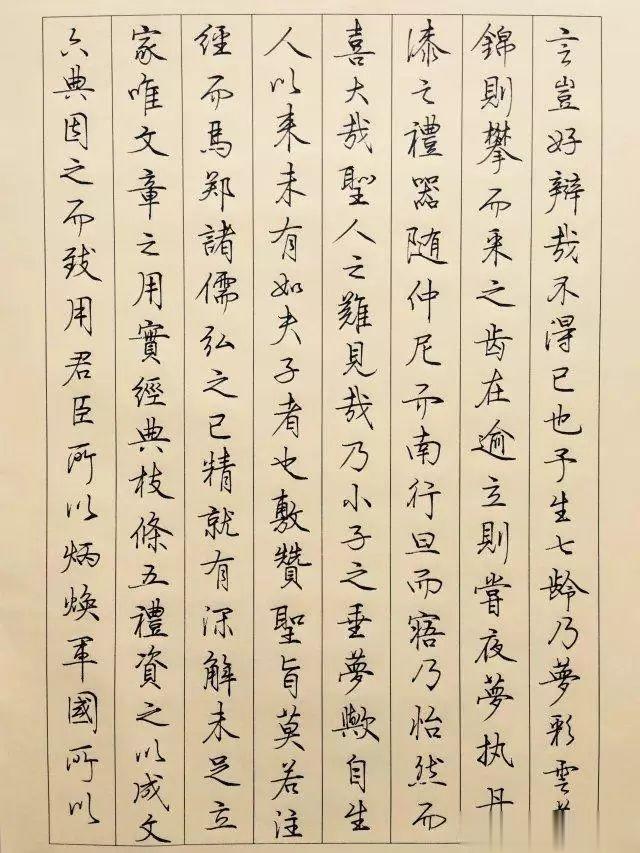 言豈好辯哉不得已也予生七齡乃夢彩雲若
錦則攀而采之齒在逾立則嘗夜夢执丹
漆之禮器随仲尼而南行旦而寤乃怡然而
喜大哉聖人之難見哉乃小子之垂夢歟自生
人以来未有如夫子者也敷贊聖旨莫若注
經而馬郑諸儒弘之已精就有深解未足立
家唯文章之用實經典枝條五禮資之以成文
六典因之而致用君臣所以炳煥軍國所以